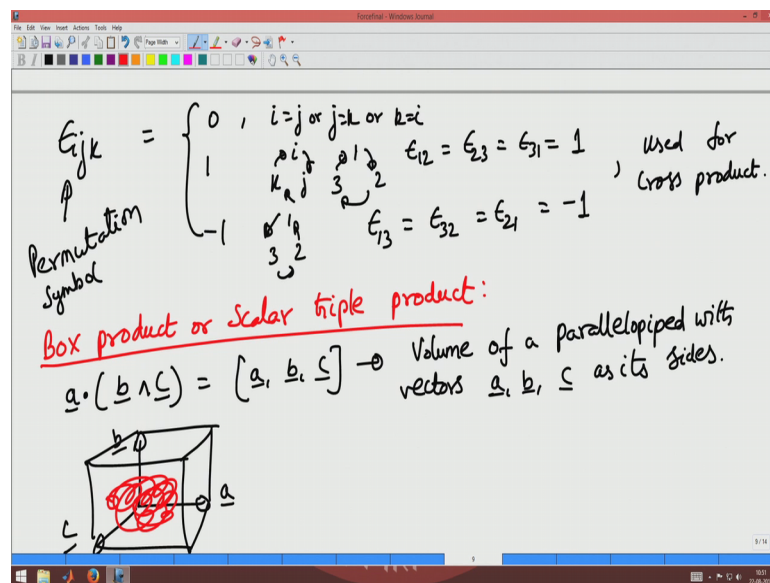 Forcefinal - Windows Journal
File Edit View Insert Actions Tools Help
Page Width
B I
ϵijk = { 0 , i=j or j=k or k=i
1 i k j 3 1 2 ϵ12 = ϵ23 = ϵ31 = 1 , used for
-1 1 3 2 ϵ13 = ϵ32 = ϵ21 = -1 cross product.
Permutation
Symbol
Box product or Scalar triple product:
a·(b∧c) = [a, b, c] → Volume of a parallelopiped with
vectors a, b, c as its sides.
b
a
c
9/14
9
10:51